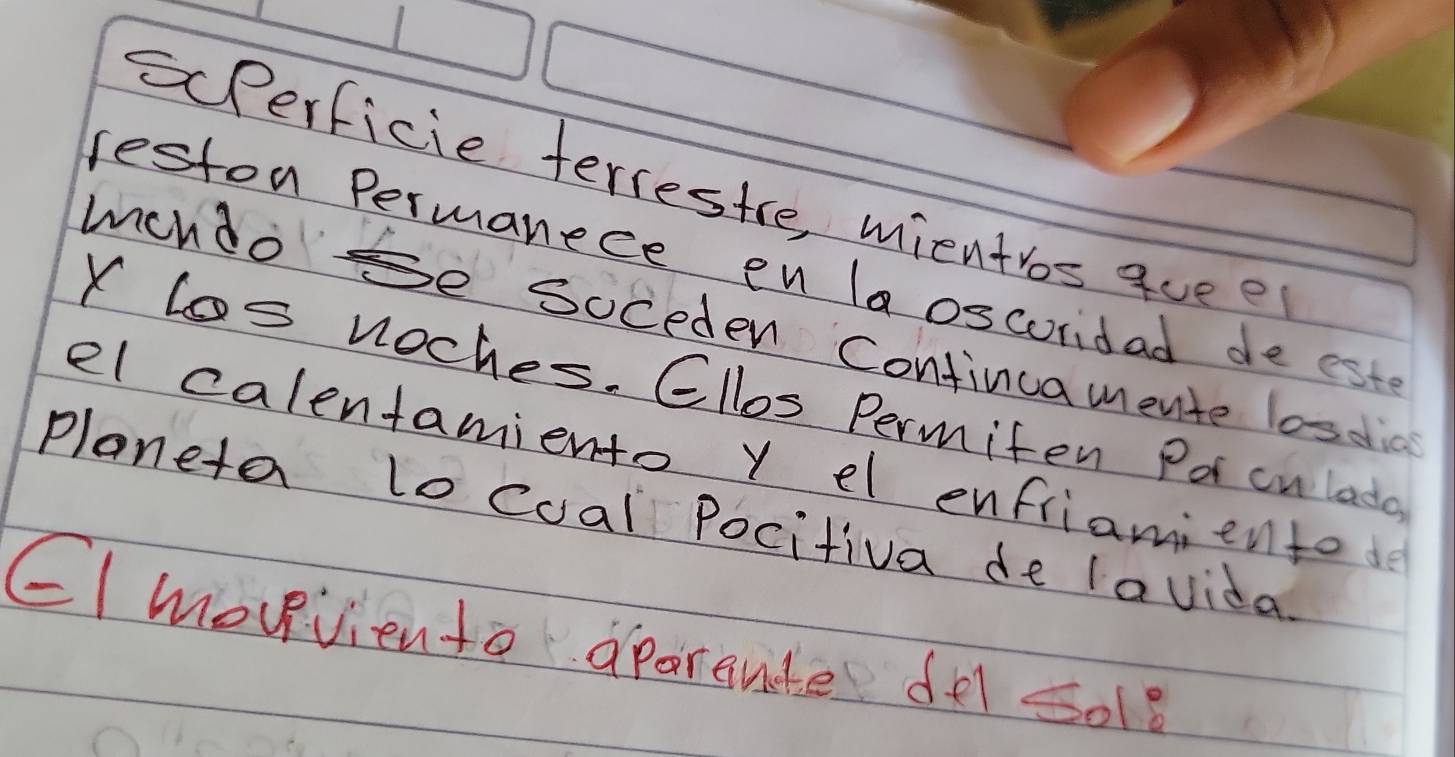 scperficie terrestre, mientros que el
reston Permanece en la oscuridad de este
mundo se suceden Continuamente losdias
Y Los noches. Ellos Permiten Por un lado,
el calentamiento Y el enfriamiento de
Planeta lo cual Pocitiva de la vida.
El mouviento aparente del sol: